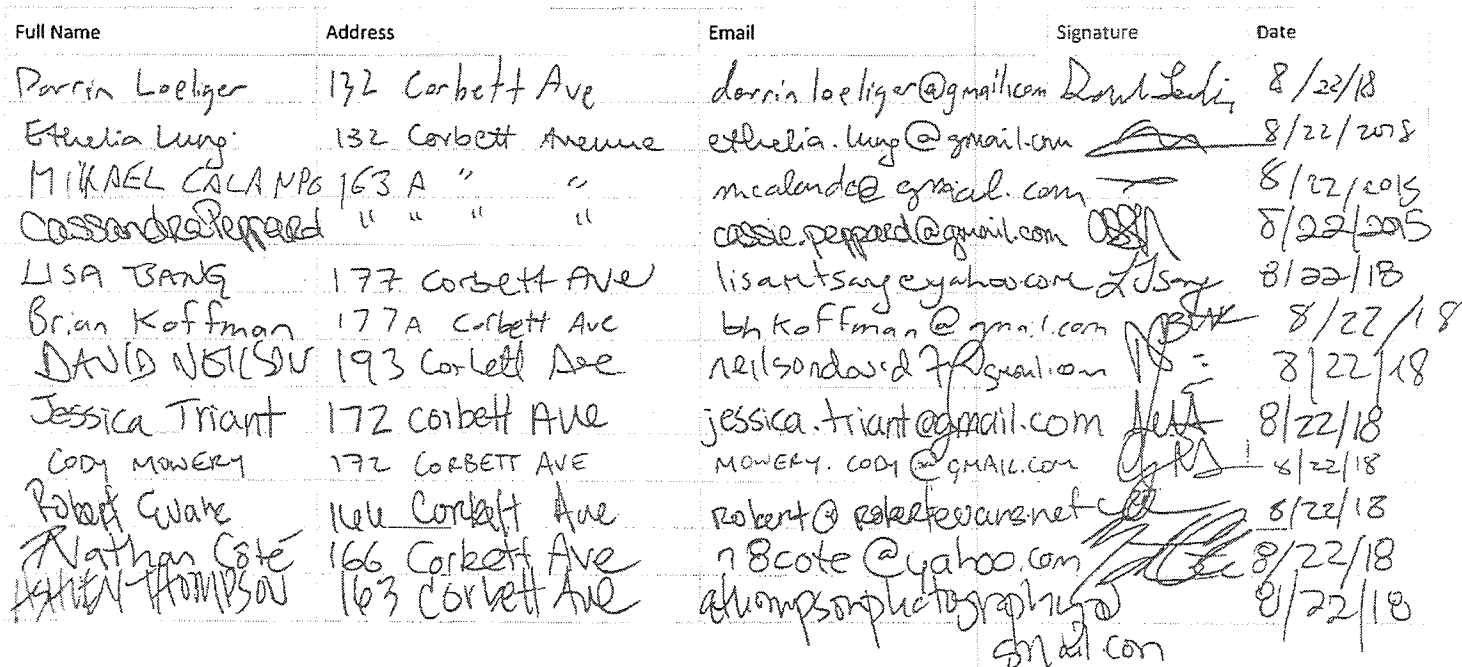 Full Name Address Email Signature Date
Darrin Loeliger 132 Corbett Ave darrinloeliger@gmail.com 8/22/18
Ethelia Lung 132 Corbett Avenue ethelia.lung@gmail.com 8/22/2018
MIKAEL 163 A " " 8/22/2018
Cassandra Peppard " " " " cassie.peppard@gmail.com 8/22/2015
LISA TSANG 177 Corbett Ave lisamtsang@yahoo.com LTsang 8/22/18
Brian Koffman 177A Corbett Ave bhkoffman@gmail.com 8/22/18
DAVID NEILSON 193 Corbett Ave neilsondavid7@gmail.com 8/22/18
Jessica Triant 172 Corbett Ave jessica.triant@gmail.com 8/22/18
CODY MOWERY 172 CORBETT AVE MOWERY.CODY@GMAIL.COM 8/22/18
Robert Evans 166 Corbett Ave robert@robertevans.net 8/22/18
Nathan Côté 166 Corbett Ave n8cote@yahoo.com 8/22/18
THOMPSON 163 Corbett Ave athompsonphotography@ 8/22/18
gmail.com